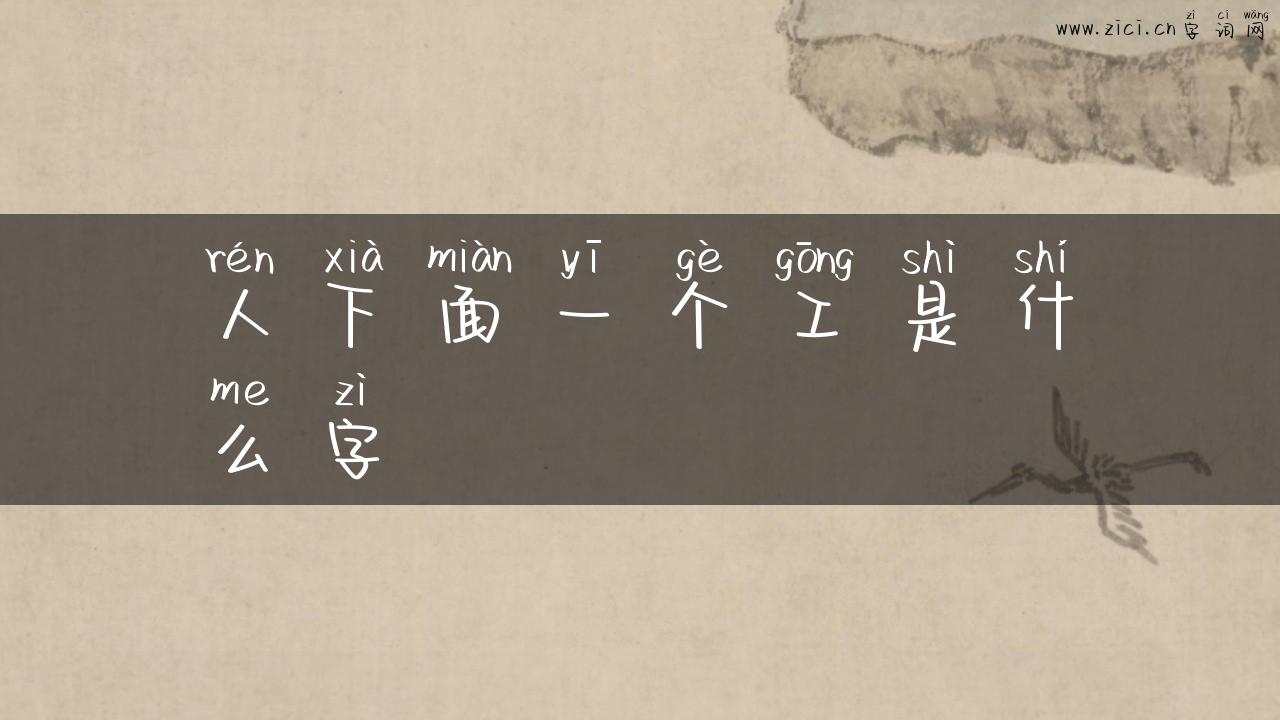 zì cí wǎng
www.zici.cn 字词网
rén xià miàn yī gè gōng shì shí
人下面一个工是什
me zì
么字